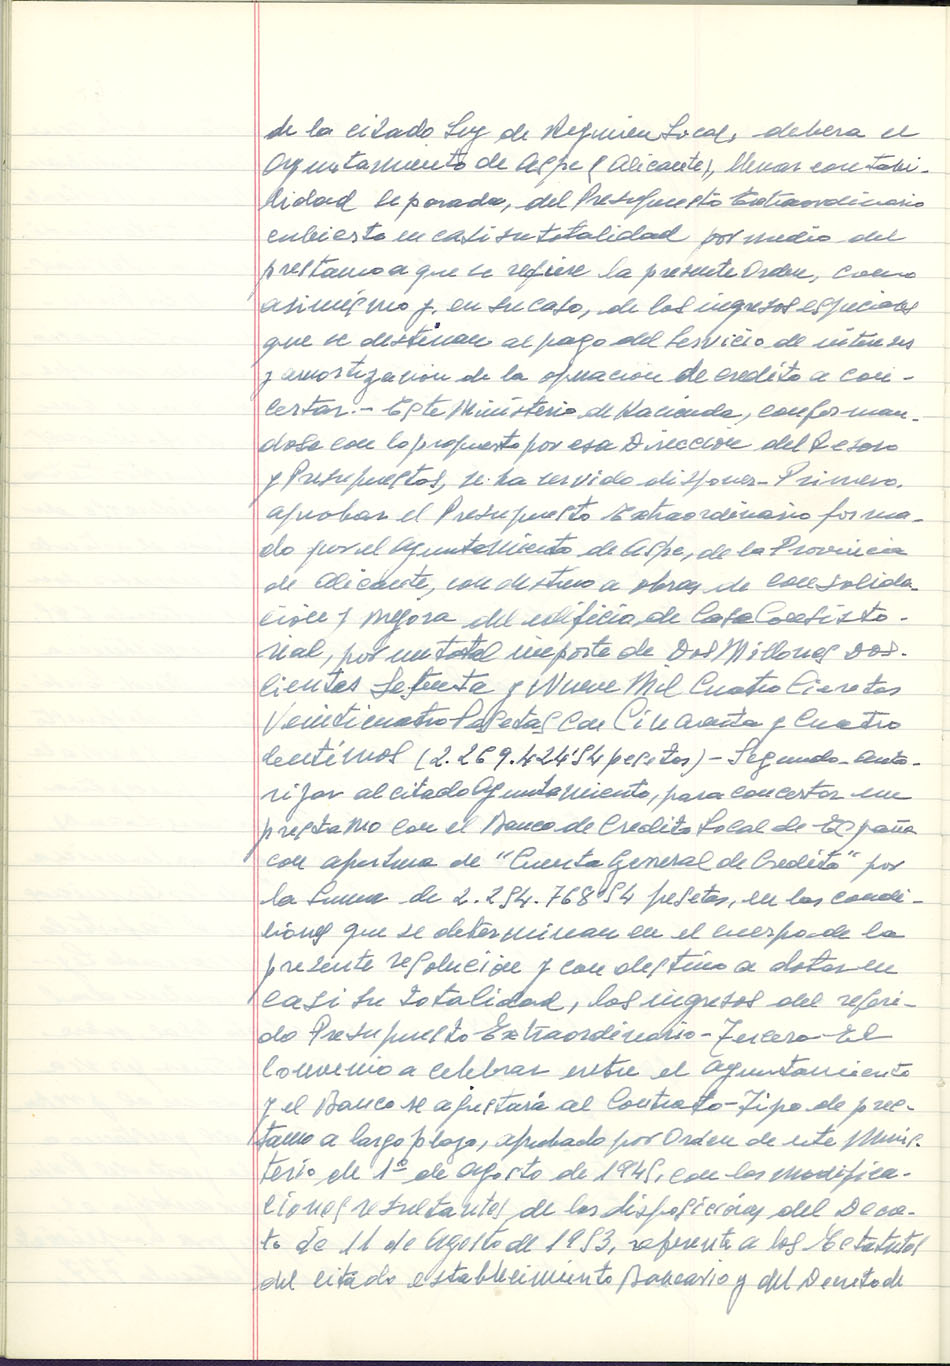 de la citado Ley de Regimen Local, debera el
Ayuntamiento de Aspe (Alicante), llevar contabi-
lidad separada, del Presupuesto Extraordinario
cubierto en casi su totalidad por medio del
prestamo a que se refiere la presente Orden, como
asimismo y, en su caso, de los ingresos especiales
que se destinan al pago del Servicio de intereses
y amortización de la operacion de credito a con-
certar.- Este Ministerio de Hacienda, conforman-
dose con lo propuesto por esa Direccion del Tesoro
y Presupuestos, se ha servido disponer- Primero.
aprobar el Presupuesto Extraordinario forma-
do por el Ayuntamiento de Aspe, de la Provincia
de Alicante, con destino a obras de consolida-
cion y mejora del edificio de Casa Consisto-
rial, por un total importe de Dos Millones Dos-
cientas Setenta y Nueve Mil Cuatro Cientas
Veinticuatro Pesetas Con Cincuenta y Cuatro
Centimos (2.269.424'54 pesetas) - Segundo- auto-
rizar al citado Ayuntamiento, para concertar un
prestamo con el Banco de Credito Local de España
con apertura de "Cuenta General de Credito" por
la Suma de 2.254.768'54 pesetas, en las condi-
ciones que se determinan en el cuerpo de la
presente resolucion y con destino a dotar en
casi su totalidad, los ingresos del referi-
do Presupuesto Extraordinario- Tercero- El
Convenio a celebrar entre el Ayuntamiento
y el Banco se ajustará al Contrato-Tipo de pres-
tamo a largo plazo, aprobado por Orden de este Minis-
terio de 1º de Agosto de 1945, con las modifica-
ciones resultantes de las disposiciones del Decre-
to de 11 de Agosto de 1953, referente a los Estatutos
del citado establecimiento Bancario y del Decreto de